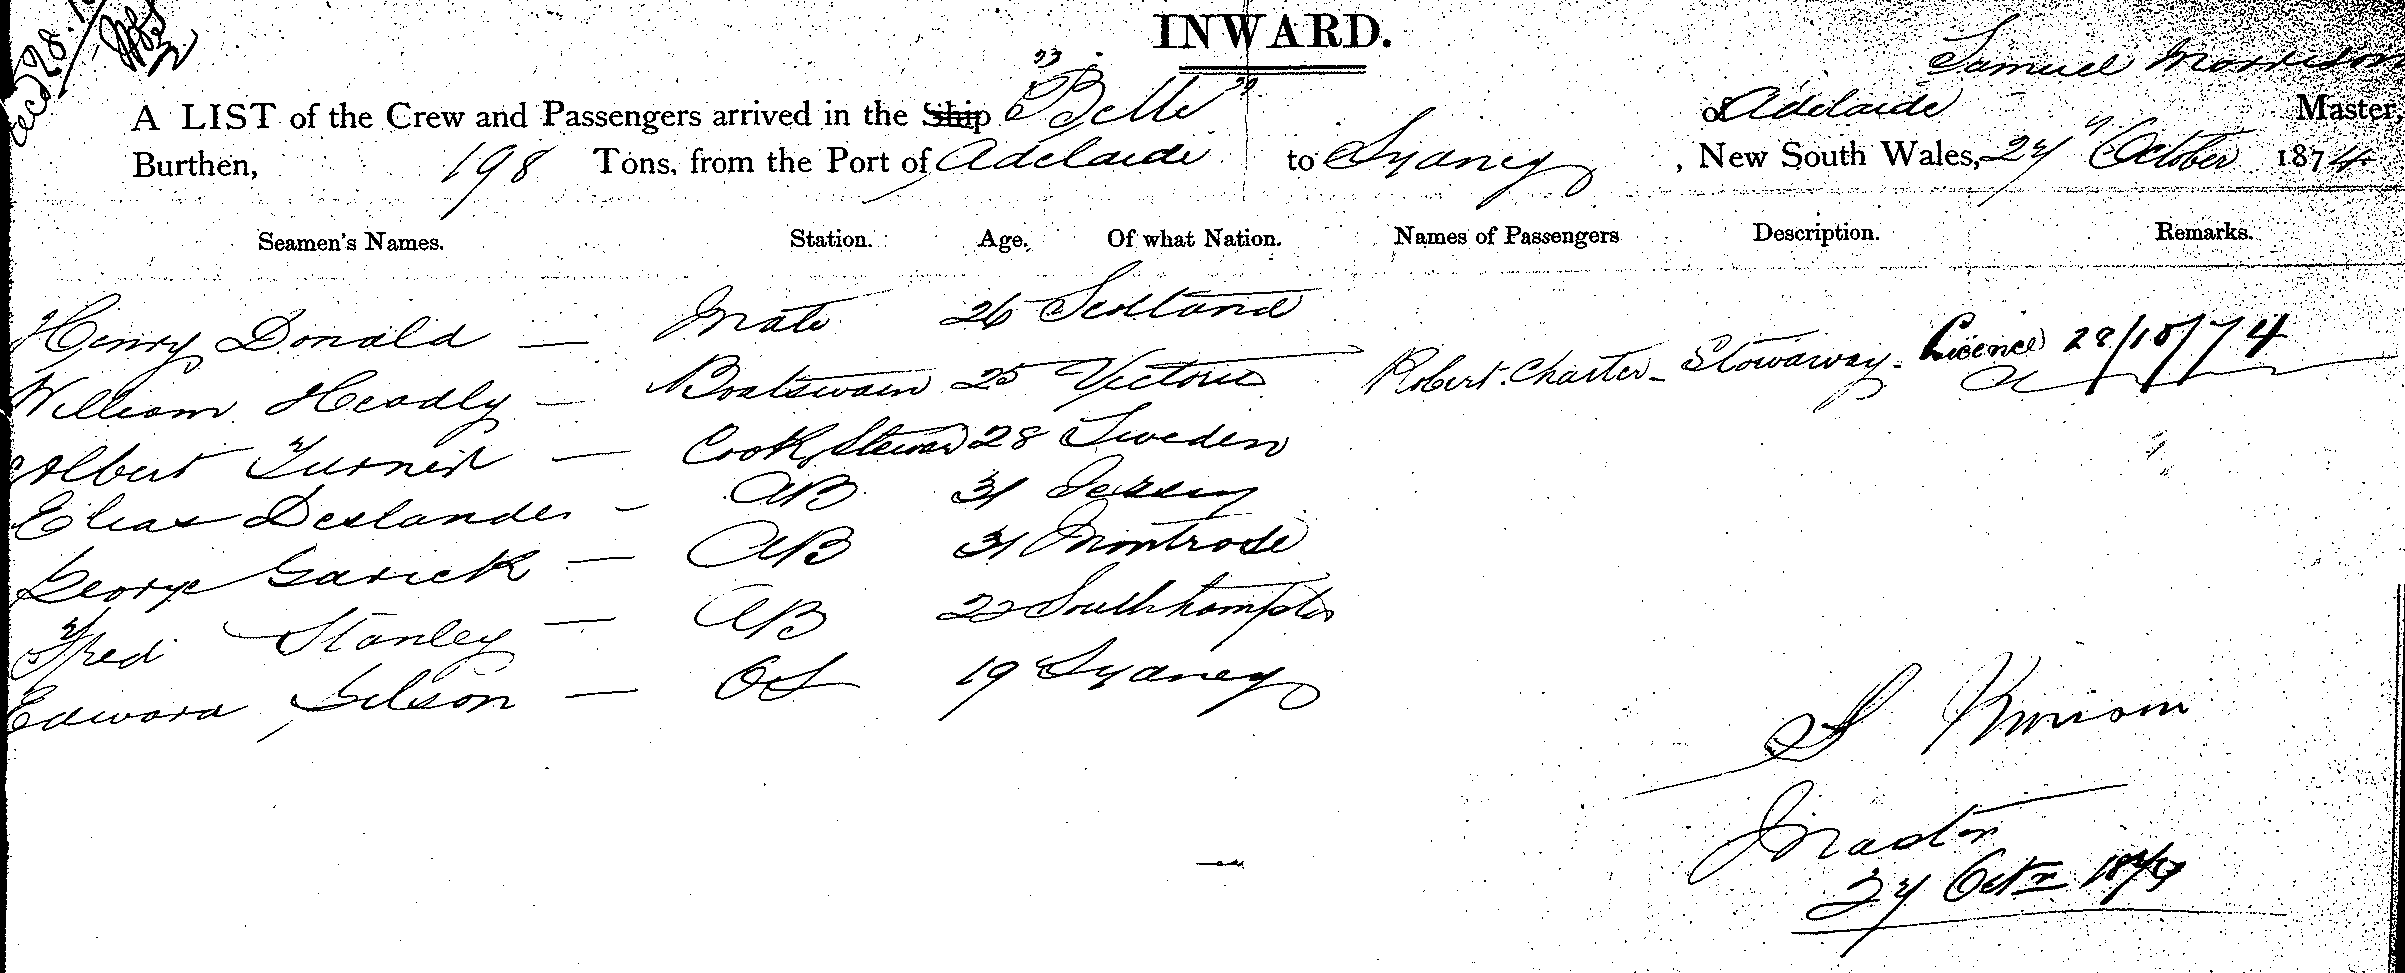 Recd 28.
INWARD.
Samuel Morrison
A LIST of the Crew and Passengers arrived in the Ship "Belle" of Adelaide Master,
Burthen, 198 Tons, from the Port of Adelaide to Sydney, New South Wales, 27" October 1874
Seamen's Names. Station. Age. Of what Nation. Names of Passengers Description. Remarks.
Henry Donald — Mate 26 Scotland
William Headly — Boatswain 25 Victoria Robert Charter - Stowaway - Licence 28/10/74
Albert Turner — Cook, Steward 28 Sweden
Elias Deslandes - AB 31 Jersey
George Garick — AB 31 Montrose
Fred Stanley — AB 22 Southampton
Edward Gilson — OS 19 Sydney
S
Master
27 Octr 1874